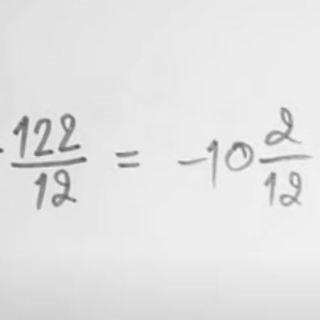 -122/12 = -10 2/12